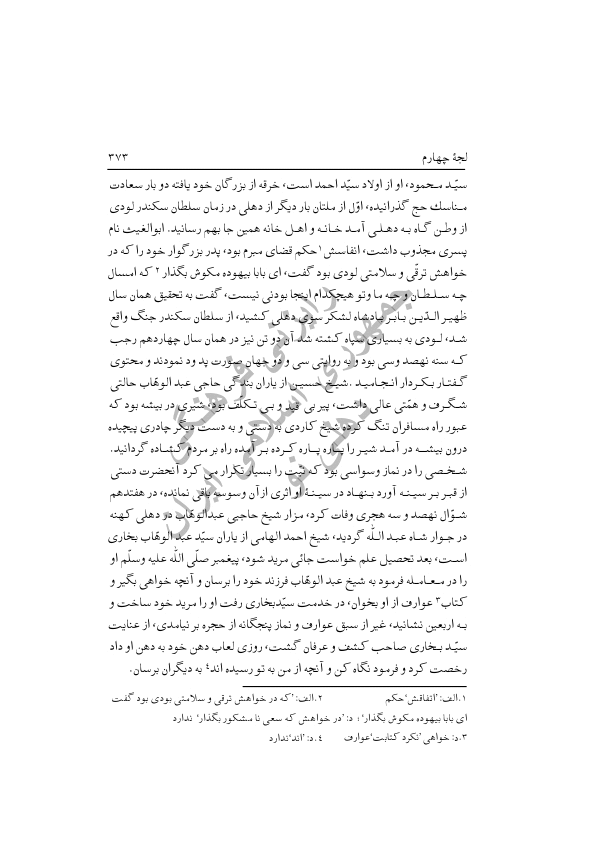 لجهٔ چهارم ۳۷۳
سیّد محمود، او از اولاد سیّد احمد است، خرقه از بزرگان خود یافته دو بار سعادت
مناسك حج گذرانیده، اوّل از ملتان بار دیگر از دهلی در زمان سلطان سکندر لودی
از وطن گاه به دهلی آمد خانه و اهل خانه همین جا بهم رسانید. ابوالغیث نام
پسری مجذوب داشت، انفاسش۱ حکم قضای مبرم بود، پدر بزرگوار خود را که در
خواهش ترقّی و سلامتی لودی بود گفت، ای بابا بیهوده مکوش بگذار۲ که امسال
چه سلطان و چه ما وتو هیچکدام اینجا بودنی نیست، گفت به تحقیق همان سال
ظهیر الدّین بابر پادشاه لشکر سوی دهلی کشید، از سلطان سکندر جنگ واقع
شد، لودی به بسیاری سپاه کشته شد آن دو تن نیز در همان سال چهاردهم رجب
که سنه نهصد وسی بود و به روایتی سی و دو جهان صورت پد ود نمودند و محتوی
گفتار بکردار انجامید. شیخ حسین از یاران بندگی حاجی عبد الوهّاب حالتی
شگرف و همّتی عالی داشت، پیر بی قید و بی تکلّف بود، شیری در بیشه بود که
عبور راه مسافران تنگ کرده شیخ کاردی به دستی و به دست دیگر چادری پیچیده
درون بیشه در آمد شیر را پاره پاره کرده بر آمده راه بر مردم کشاده گردانید.
شخصی را در نماز وسواسی بود که نیّت را بسیار تکرار می کرد آنحضرت دستی
از قبر بر سینه آورد بنهاد در سینهٔ او اثری از آن وسوسه باقی نمانده، در هفتدهم
شوّال نهصد و سه هجری وفات کرد، مزار شیخ حاجیی عبدالوهّاب در دهلی کهنه
در جوار شاه عبد اللّه گردید، شیخ احمد الهامی از یاران سیّد عبد الوهّاب بخاری
است، بعد تحصیل علم خواست جائی مرید شود، پیغمبر صلّی اللّه علیه وسلّم او
را در معامله فرمود به شیخ عبد الوهّاب فرزند خود را برسان و آنچه خواهی بگیر و
کتاب۳ عوارف از او بخوان، در خدمت سیّدبخاری رفت او را مرید خود ساخت و
به اربعین نشانید، غیر از سبق عوارف و نماز پنجگانه از حجره بر نیامدی، از عنایت
سیّد بخاری صاحب کشف و عرفان گشت، روزی لعاب دهن خود به دهن او داد
رخصت کرد و فرمود نگاه کن و آنچه از من به تو رسیده اند٤ به دیگران برسان.
۱.الف: 'اتفاقش' حکم ۲.الف: 'که در خواهش ترقی و سلامتی بودی بود گفت
ای بابا بیهوده مکوش بگذار' ؛ د: 'در خواهش که سعی نا مشکور بگذار' ندارد
۳.د: خواهی 'نکرد کتابت' عوارف ٤.د: 'اند' ندارد
رایزنی فرهنگی
جمهوری اسلامی ایران
دهلی نو